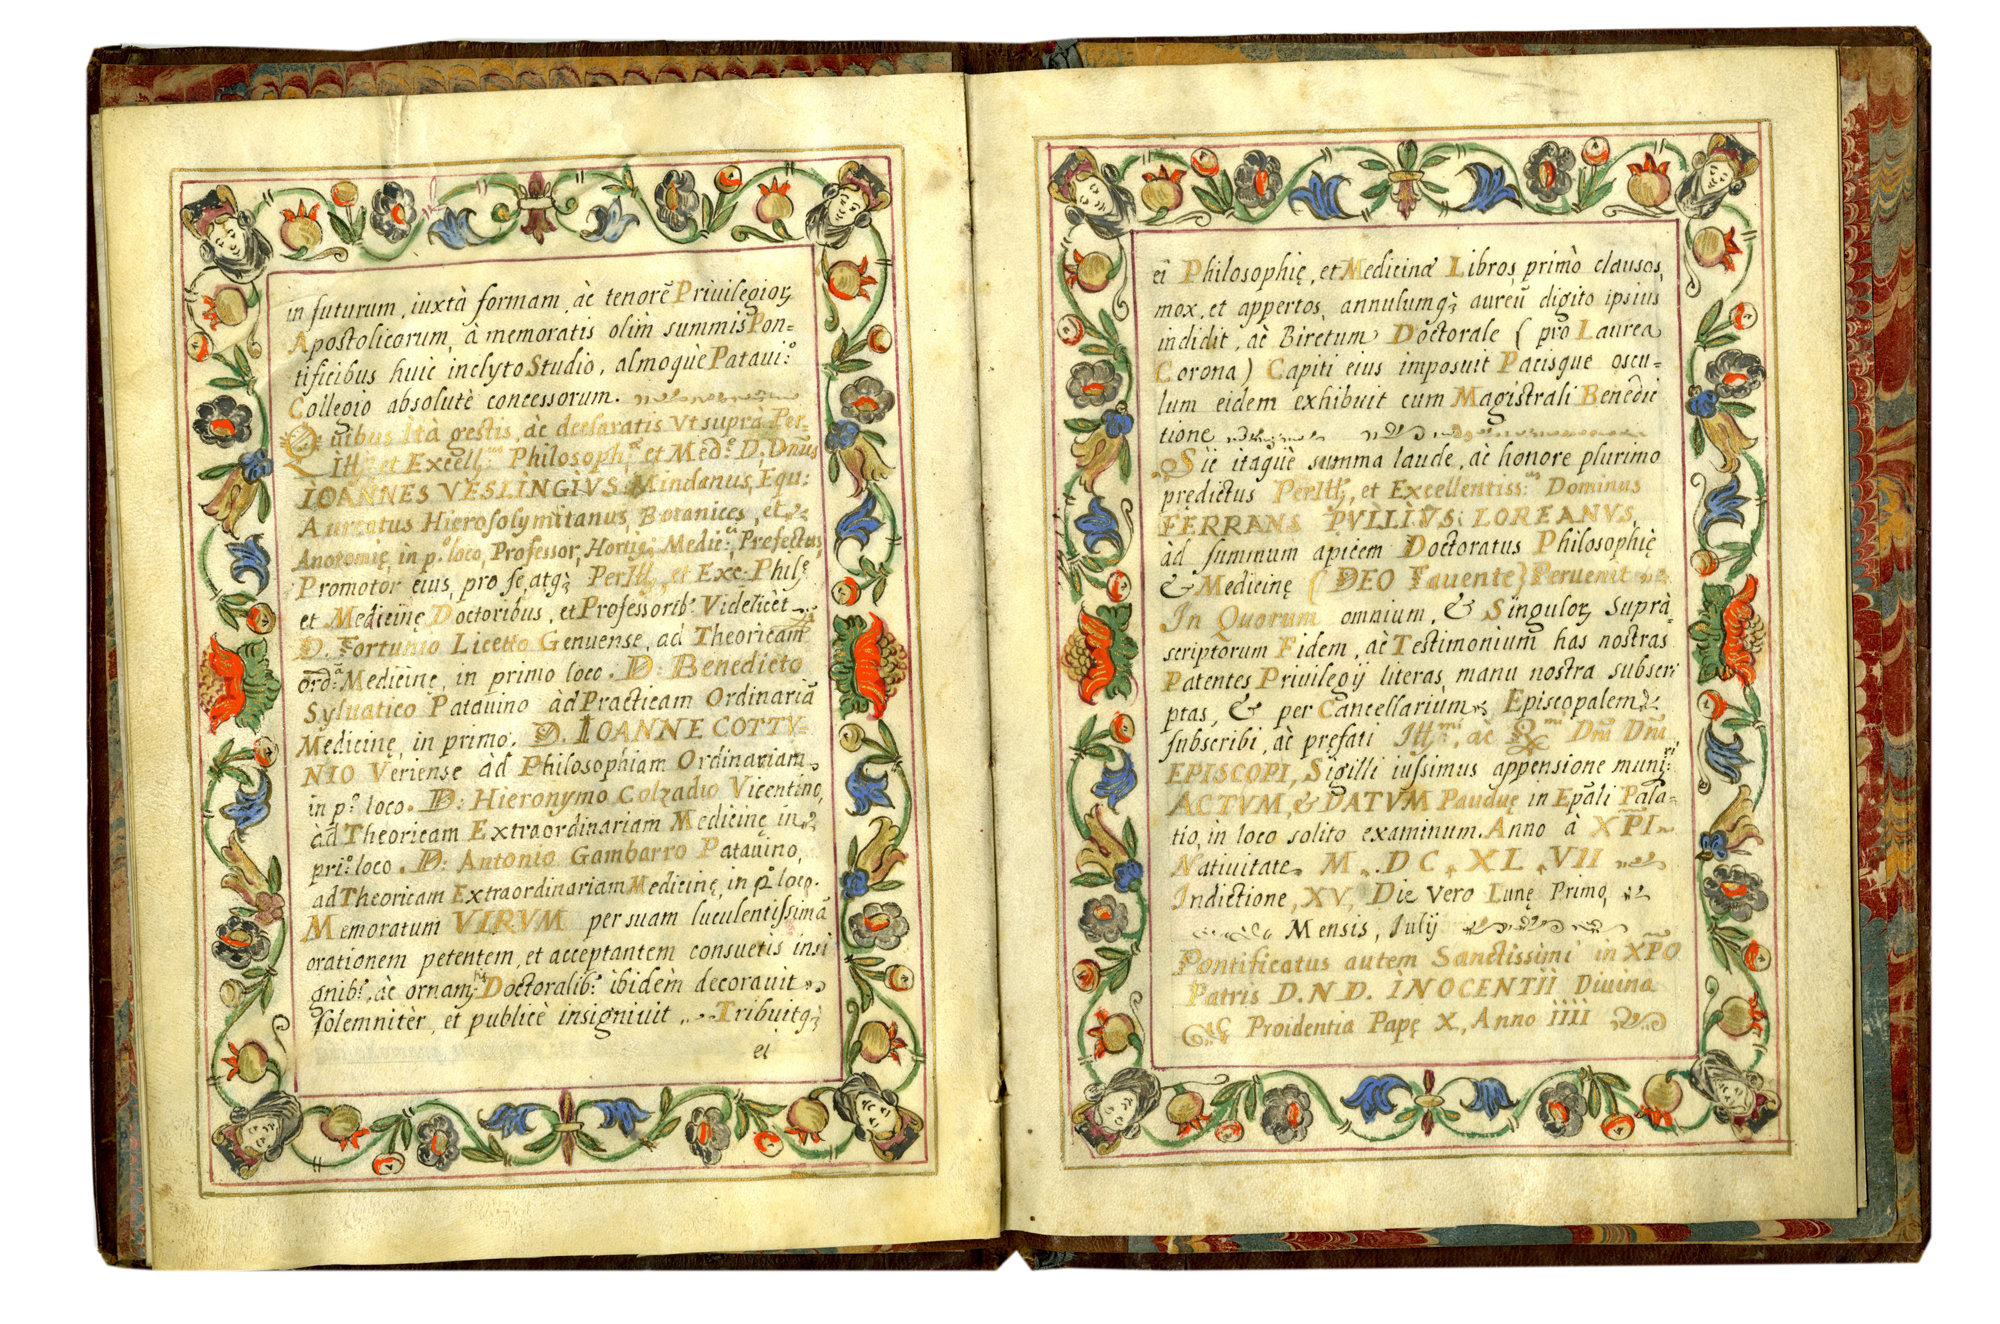 in futurum, iuxtà formam, àc tenorē Priuilegioꝝ
Apostolicorum, à memoratis olim summis Pon=
tificibus huic inclyto Studio, almoquè Pataui.º
Collegio absolutè concessorum.
Quibus Ità gestis, àc declaratis Vt suprà Per-
Ill. et Excell: Philosoph.ª et Med.º D. Dnūs
IOANNES VESLINGIVS Mindanus, Equ:
Auratus Hierosolymitanus, Botanices, et
Anotomię, in p.º loco, Professor, Hortiq; Medic: Prefectus,
Promotor eius, pro se, atq; PerIll, et Exc: Phil.ę
et Medicinę Doctoribus, et Professorib.s Videlicèt
D. Fortunio Licetto Genuense, ad Theoricam
ord.ª Medicinę, in primo loco. D: Benedicto
Syluatico Patauino àd Practicam Ordinariā
Medicinę, in primo. D. IOANNE COTTV-
NIO Veriense àd Philosophiam Ordinariam
in p.º loco. D: Hieronymo Colzadio Vicentino,
àd Theoricam Extraordinariam Medicinę, in
pri.º loco. D: Antonio Gambarro Patauino,
ad Theoricam Extraordinariam Medicinę, in p.º loco.
Memoratum VIRVM per suam luculentissimā
orationem petentem, et acceptantem consuetis insi
gnib.s, àc ornam.tis Doctoralib.s ibidèm decorauit
solemnitèr, et publicè insigniuit Tribuitq;
ei
ei Philosophię, et Medicinæ Libros, primò clausos,
mox, et appertos, annulumq; aureū digito ipsius
indidit, àc Biretum Doctorale ( pro Laurea
Corona ) Capiti eius imposuit Pacisque oscu-
lum eidem exhibuit cum Magistrali Benedic
tione
Sic itaquè summa laude, àc honore plurimo
prędictus PerIll, et Excellentiss: Dominus
FERRANS PVLLIVS: LOREANVS,
àd summum apicem Doctoratus Philosophię
& Medicinę ( DEO Fauente) Peruenit
In Quorum omnium, & Singuloꝝ Suprà-
scriptorum Fidem, àc Testimonium has nostras
Patentes Priuilegij literas, manu nostra subscri
ptas, & per Cancellarium Episcopalem
subscribi, àc pręfati Ill.mi, àc R.mi Dnī Dnī,
EPISCOPI, Sigilli iussimus appensione muniri:
ACTVM, & DATVM Paduę in Epāli Pala-
tio, in loco solito examinum. Anno à XPI
Natiuitate M. DC. XL. VII
Indictione, XV, Die vero Lunę Primo,
Mensis, Iulij
Pontificatus autem Sanctissimi in XPO
Patris D.N.D. INOCENTII Diuina
Proidentia Papę X., Anno IIII